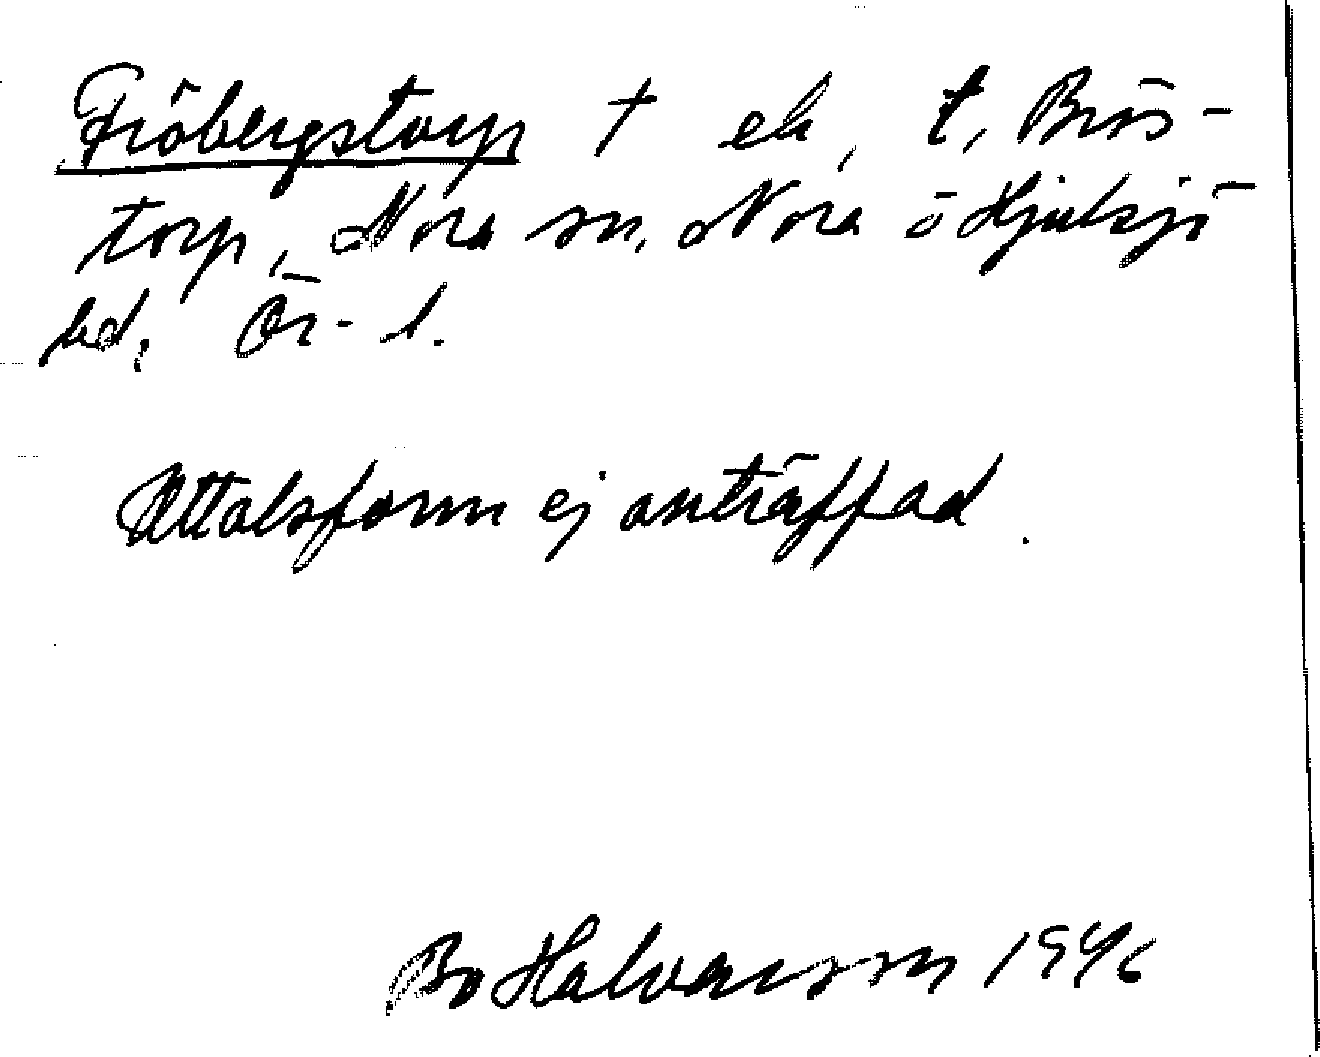 Fröbergstorp † eli, t. Brös-
torp, Nora sn, Nora o Hjulsjö
bd, Ör- l.
Uttalsform ej anträffad.
Bo Halvarsson 1946